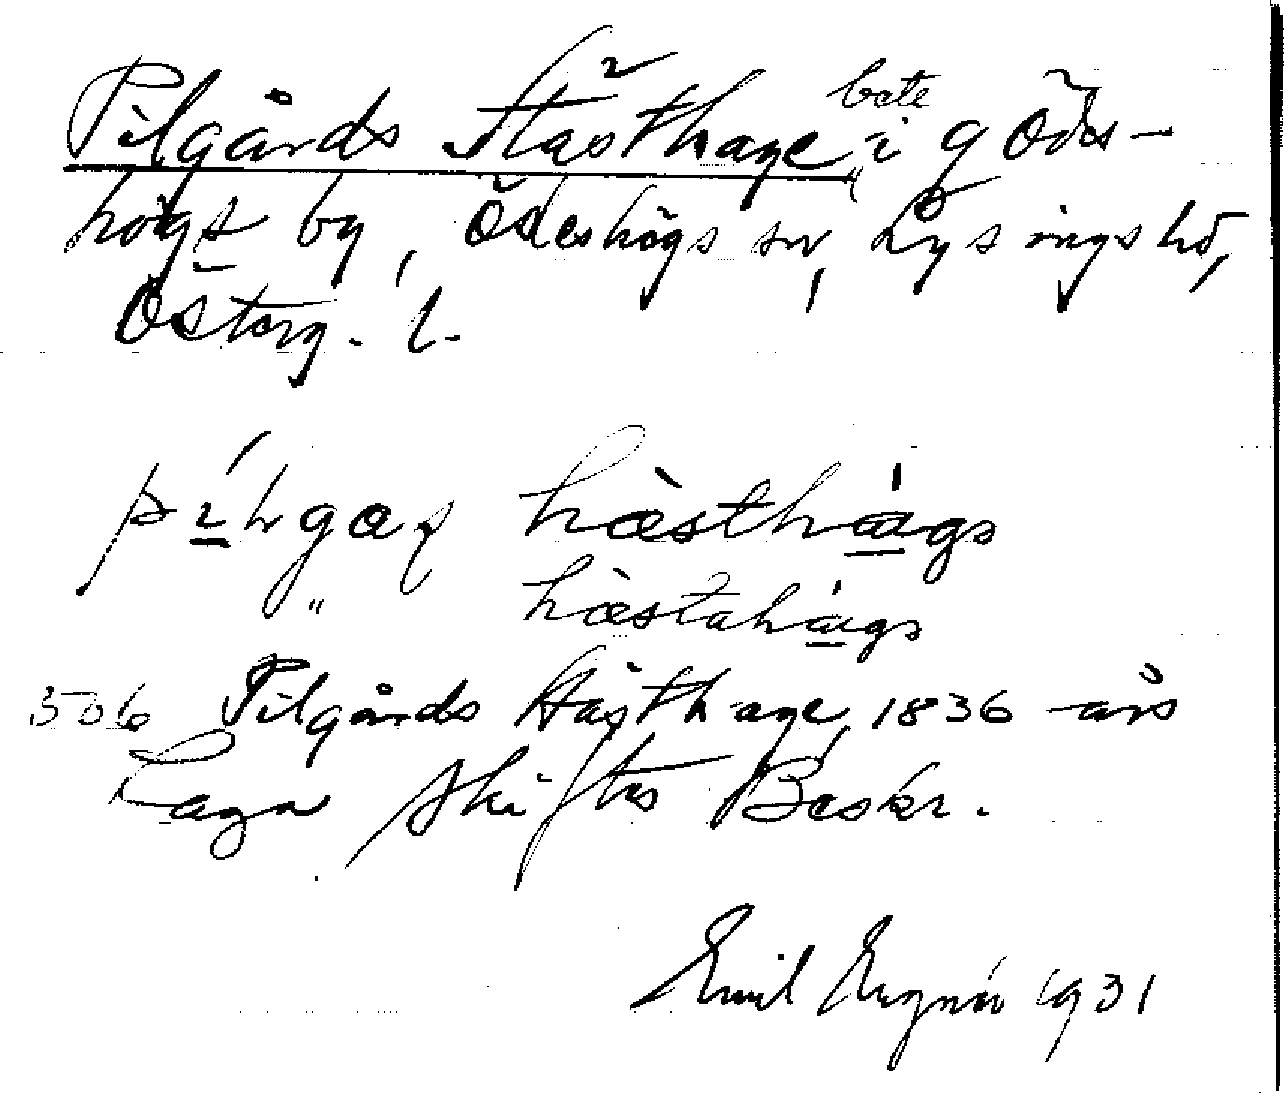 Pilgårds Hästhage, bete i g Ödes-
högs by, Ödeshögs sn, Lysings hd,
Österg. l.
hæsthags
" hæstahags
506 Pilgårds Hästhage, 1836 års
Laga skiftes Beskr.
Emil 1931